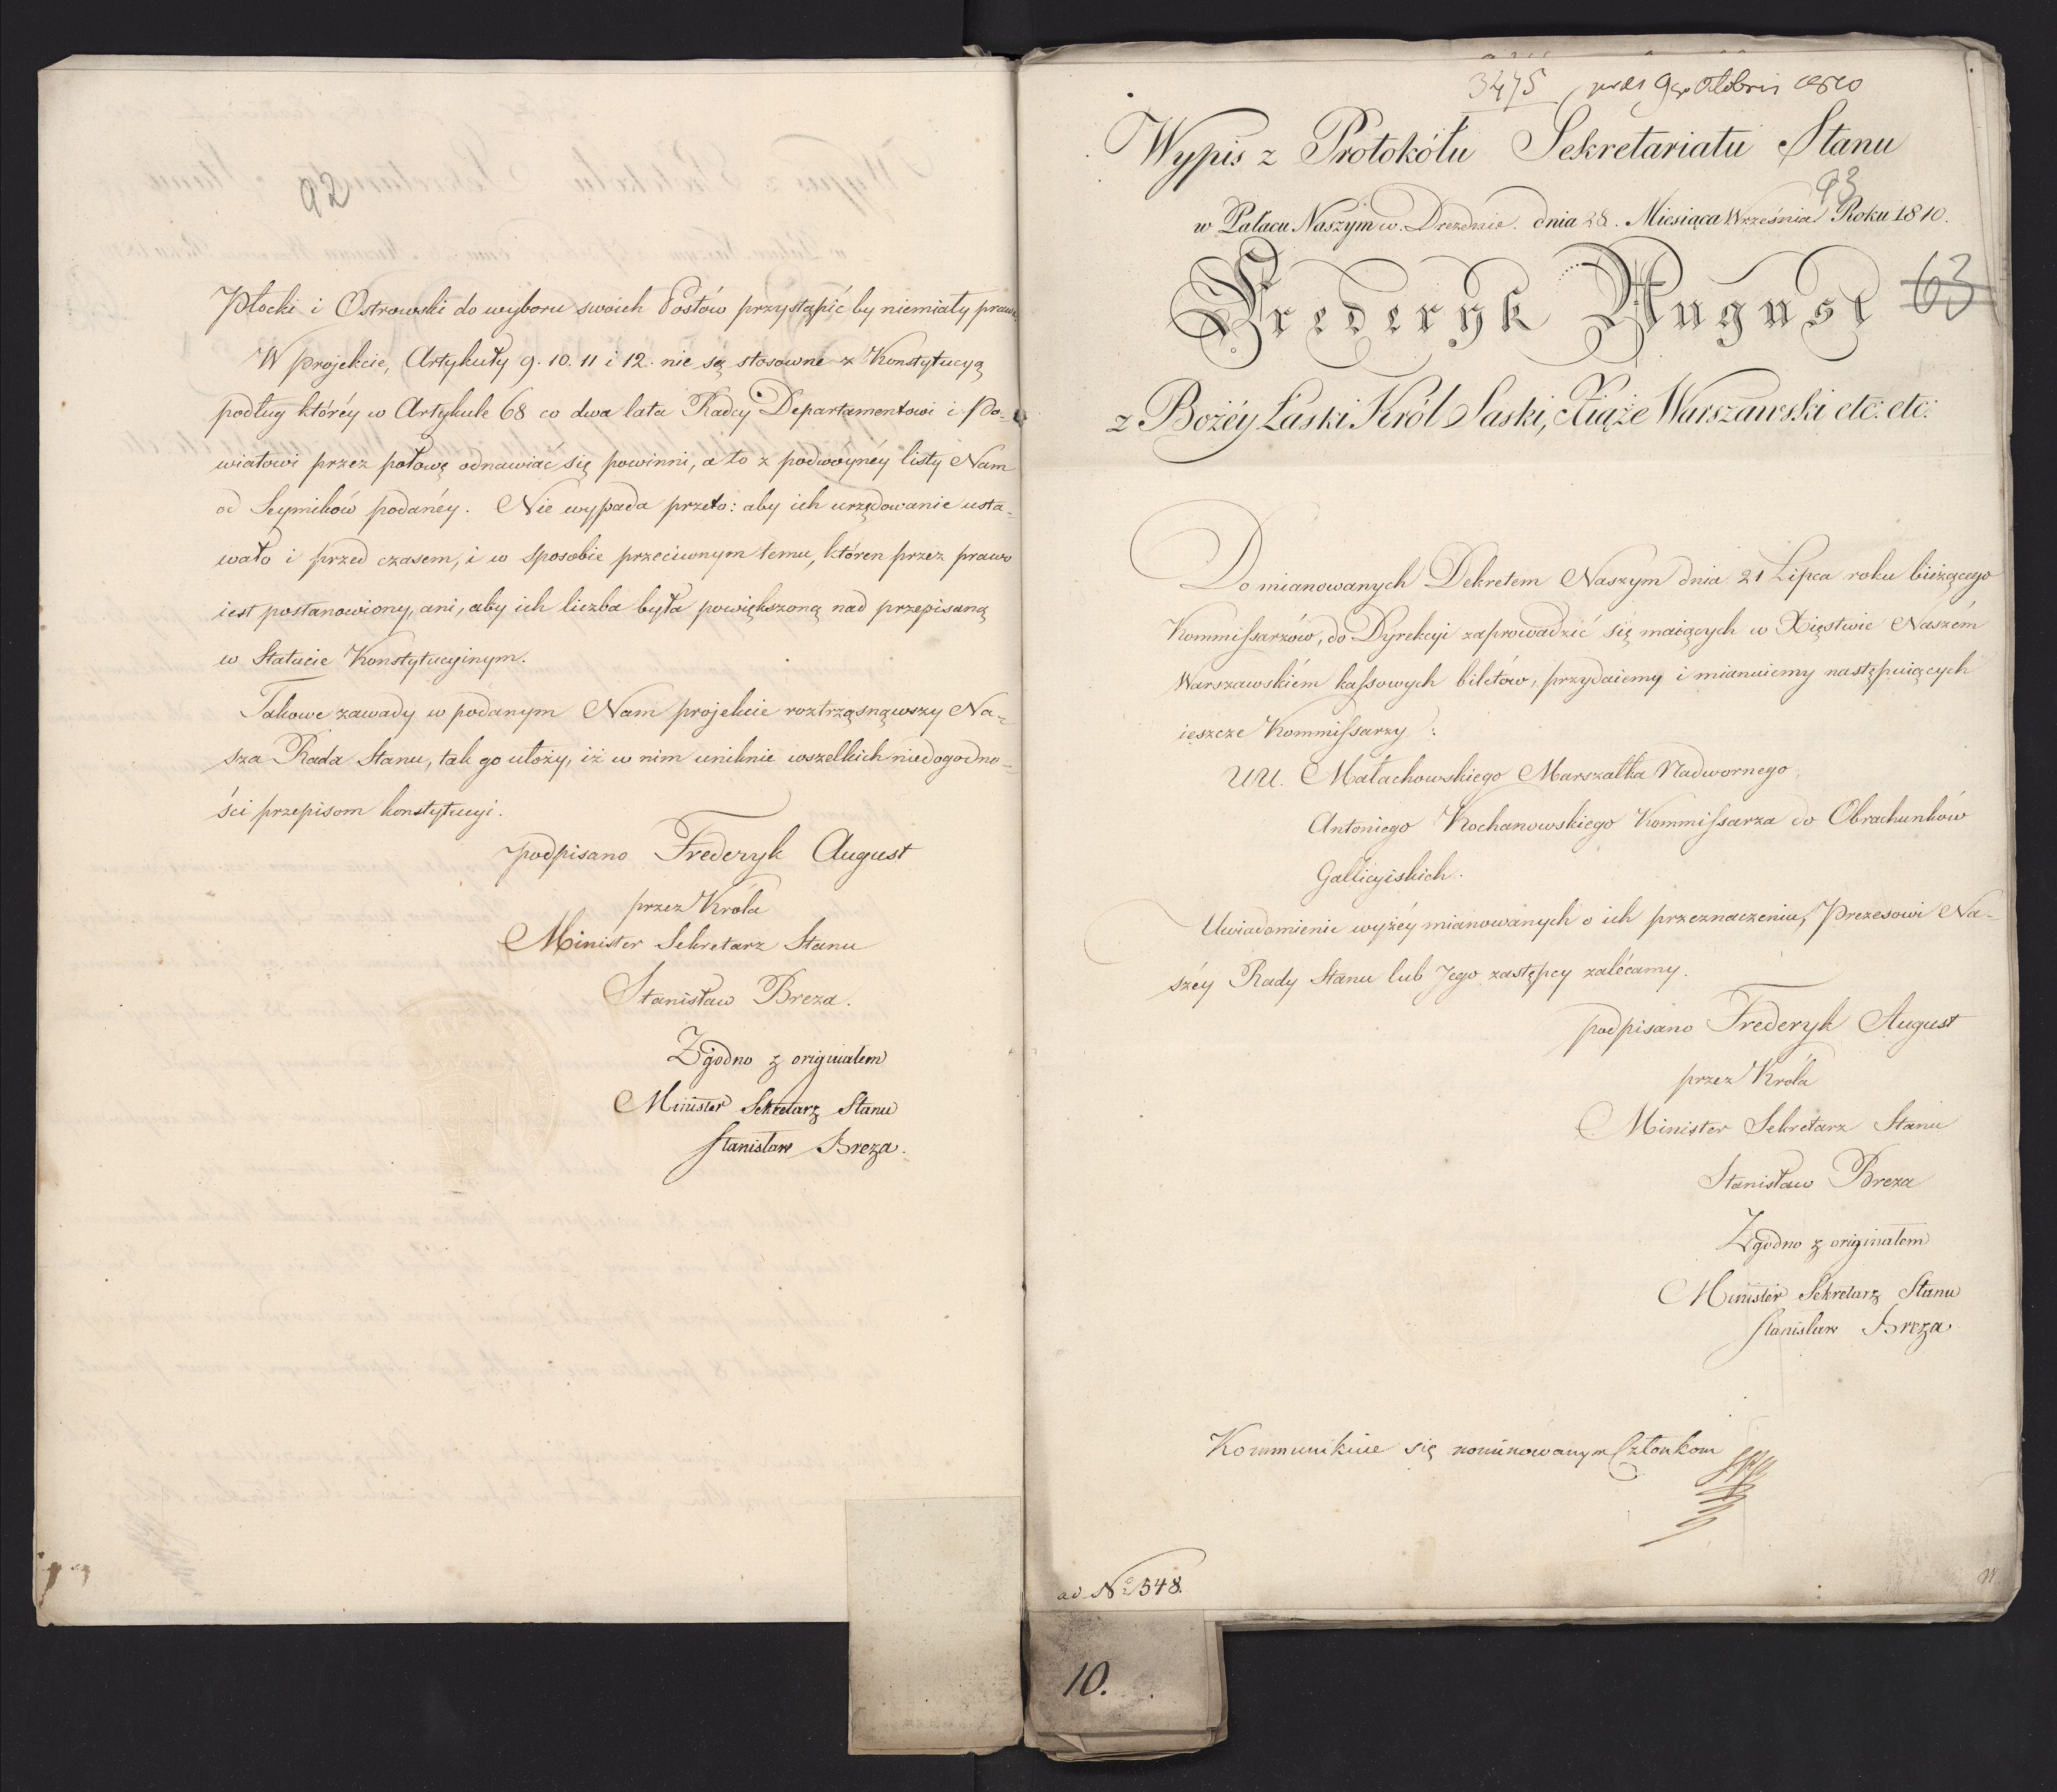 92
Płocki i Ostrowski do wyboru swoich Posłów przystąpić by niemiały prawa.
W projekcie, Artykuły 9. 10. 11 i 12. nie są stosowne z Konstytucyą
podług któréy w Artykule 68 co dwa lata Radcy Departamentowi i Po-
wiatowi przez połowę odnawiać się powinni, a to z podwoynéy listy Nam
od Seymików podanéy. Nie wypada przeto: aby ich urzędowanie usta-
wało i przed czasem, i w sposobie przeciwnym temu, któren przez prawo
iest postanowiony, ani, aby ich liczba była powiększoną nad przepisaną
w Statucie Konstytucyinym.
Takowe zawady w podanym Nam projekcie roztrząsnąwszy Na-
sza Rada Stanu, tak go ułoży, iż w nim uniknie wszelkich niedogodno-
ści przepisom konstytucyi.
podpisano Frederyk August
przez Króla
Minister Sekretarz Stanu
Stanisław Breza.
Zgodno z originałem
Minister Sekretarz Stanu
Stanisław Breza.
3475 9 8bris 1810
Wypis z Protokółu Sekretariatu Stanu
93
w Pałacu Naszym w Dreznie. dnia 28. Miesiąca Września Roku 1810.
Frederyk August
63
z Bożéy Łaski Król Saski, Xiąże Warszawski etc: etc:
Do mianowanych Dekretem Naszym dnia 21 Lipca roku bieżącego
Kommissarzów, do Dyrekcyi zaprowadzić się maiących w Xięstwie Naszém
Warszawskiém kassowych biletów, przydaiemy i mianuiemy następuiących
ieszcze Kommissarzy:
UU. Małachowskiego Marszałka Nadwornego
Antoniego Kochanowskiego Kommissarza do Obrachunków
Gallicyiskich.
Uwiadomienie wyżéy mianowanych o ich przeznaczeniu, Prezesowi Na-
széy Rady Stanu lub Jego zastępcy zalécamy.
podpisano Frederyk August
przez Króla
Minister Sekretarz Stanu
Stanisław Breza
Zgodno z originałem
Minister Sekretarz Stanu
Stanisław Breza
Kommunikuie się nominowanym Członkom
ad No 548.
10.